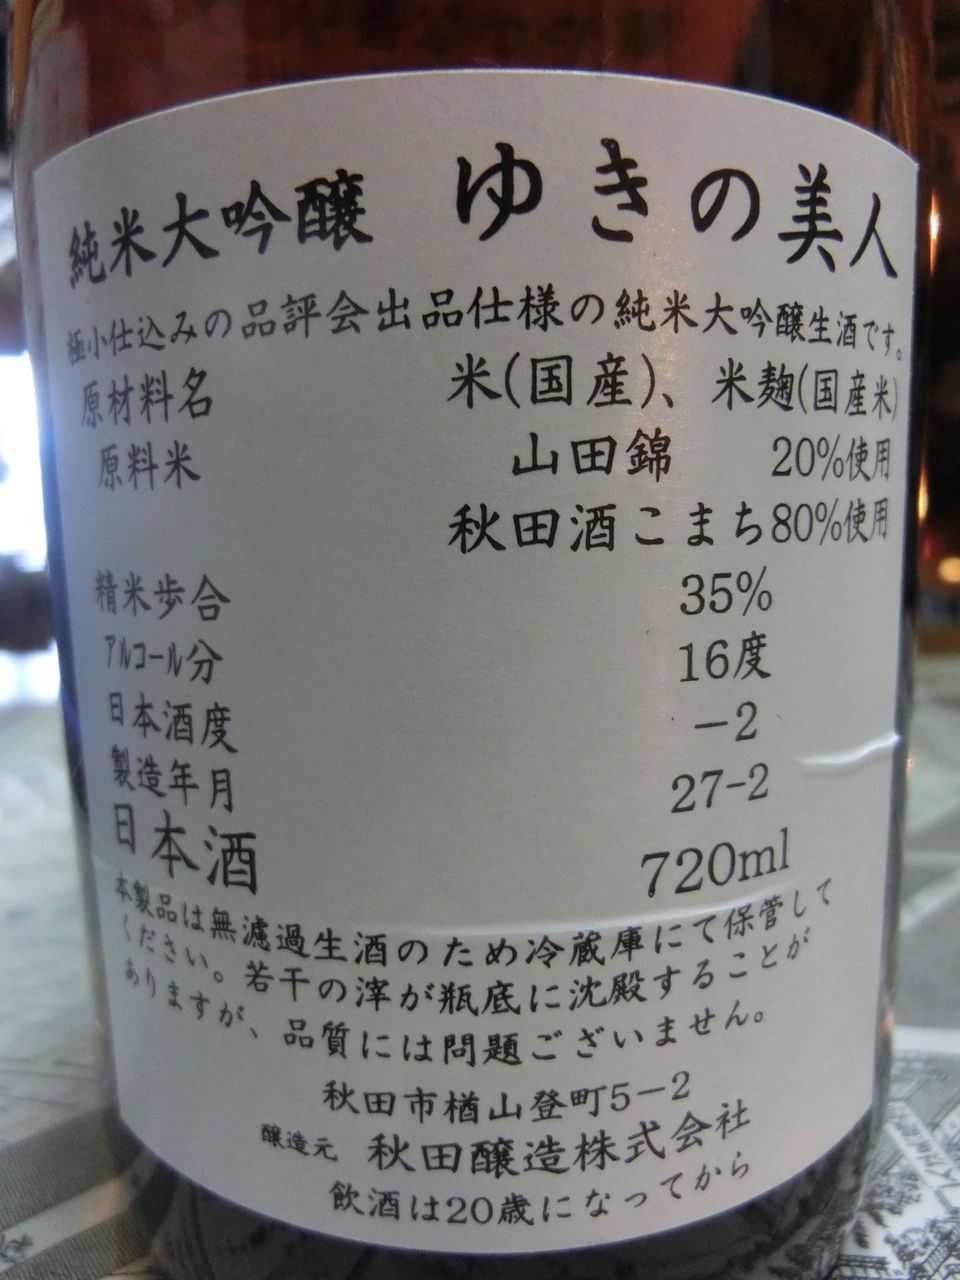 純米大吟醸 ゆきの美人
極小仕込みの品評会出品仕様の純米大吟醸生酒です。
原材料名 米(国産)、米麹(国産米)
原料米 山田錦 20%使用
秋田酒こまち80%使用
精米歩合 35%
アルコール分 16度
日本酒度 −2
製造年月 27-2
日本酒 720ml
本製品は無濾過生酒のため冷蔵庫にて保管して
ください。若干の滓が瓶底に沈殿することが
ありますが、品質には問題ございません。
秋田市楢山登町5−2
醸造元 秋田醸造株式会社
飲酒は20歳になってから